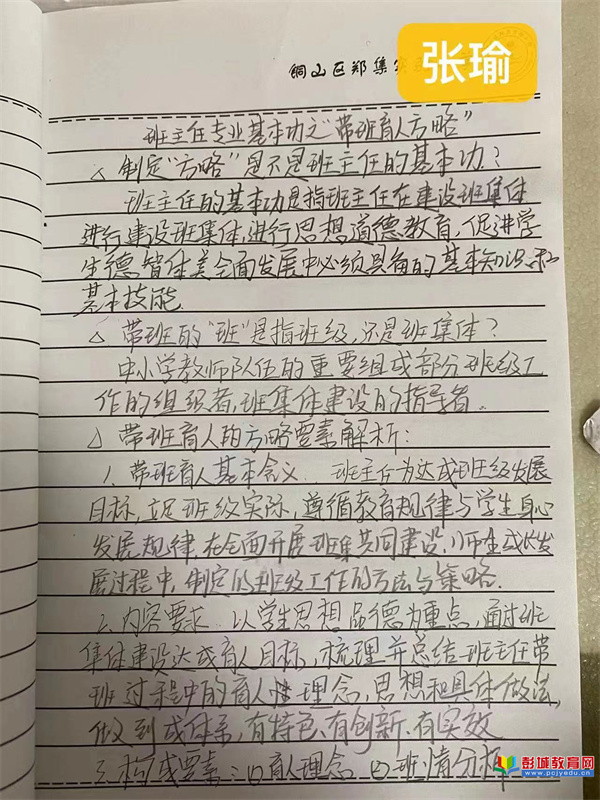 张瑜
铜山区郑集实
班主任专业基本功之“带班育人方略”
△制定“方略”是不是班主任的基本功？
班主任的基本功是指班主任在建设班集体
进行建设班集体,进行思想道德教育,促进学
生德智体美全面发展中必须具备的基本知识和
基本技能.
△带班的“班”是指班级,还是班集体？
中小学教师队伍的重要组成部分班级工
作的组织者,班集体建设的指导者.
△带班育人的方略要素解析:
1.带班育人基本含义. 班主任为达成班级发展
目标,立足班级实际,遵循教育规律与学生身心
发展规律,在全面开展班集共同建设,师生成长发
展过程中,制定的班级工作的方法与策略.
2.内容要求: 以学生思想品德为重点,通过班
集体建设达成育人目标,梳理并总结班主任带
班过程中的育人性理念,思想和具体做法,
做到成体系,有特色、有创新、有实效
3.构成要素:①育人理念 ②班情分析
彭城教育网
www.pcjyedu.cn